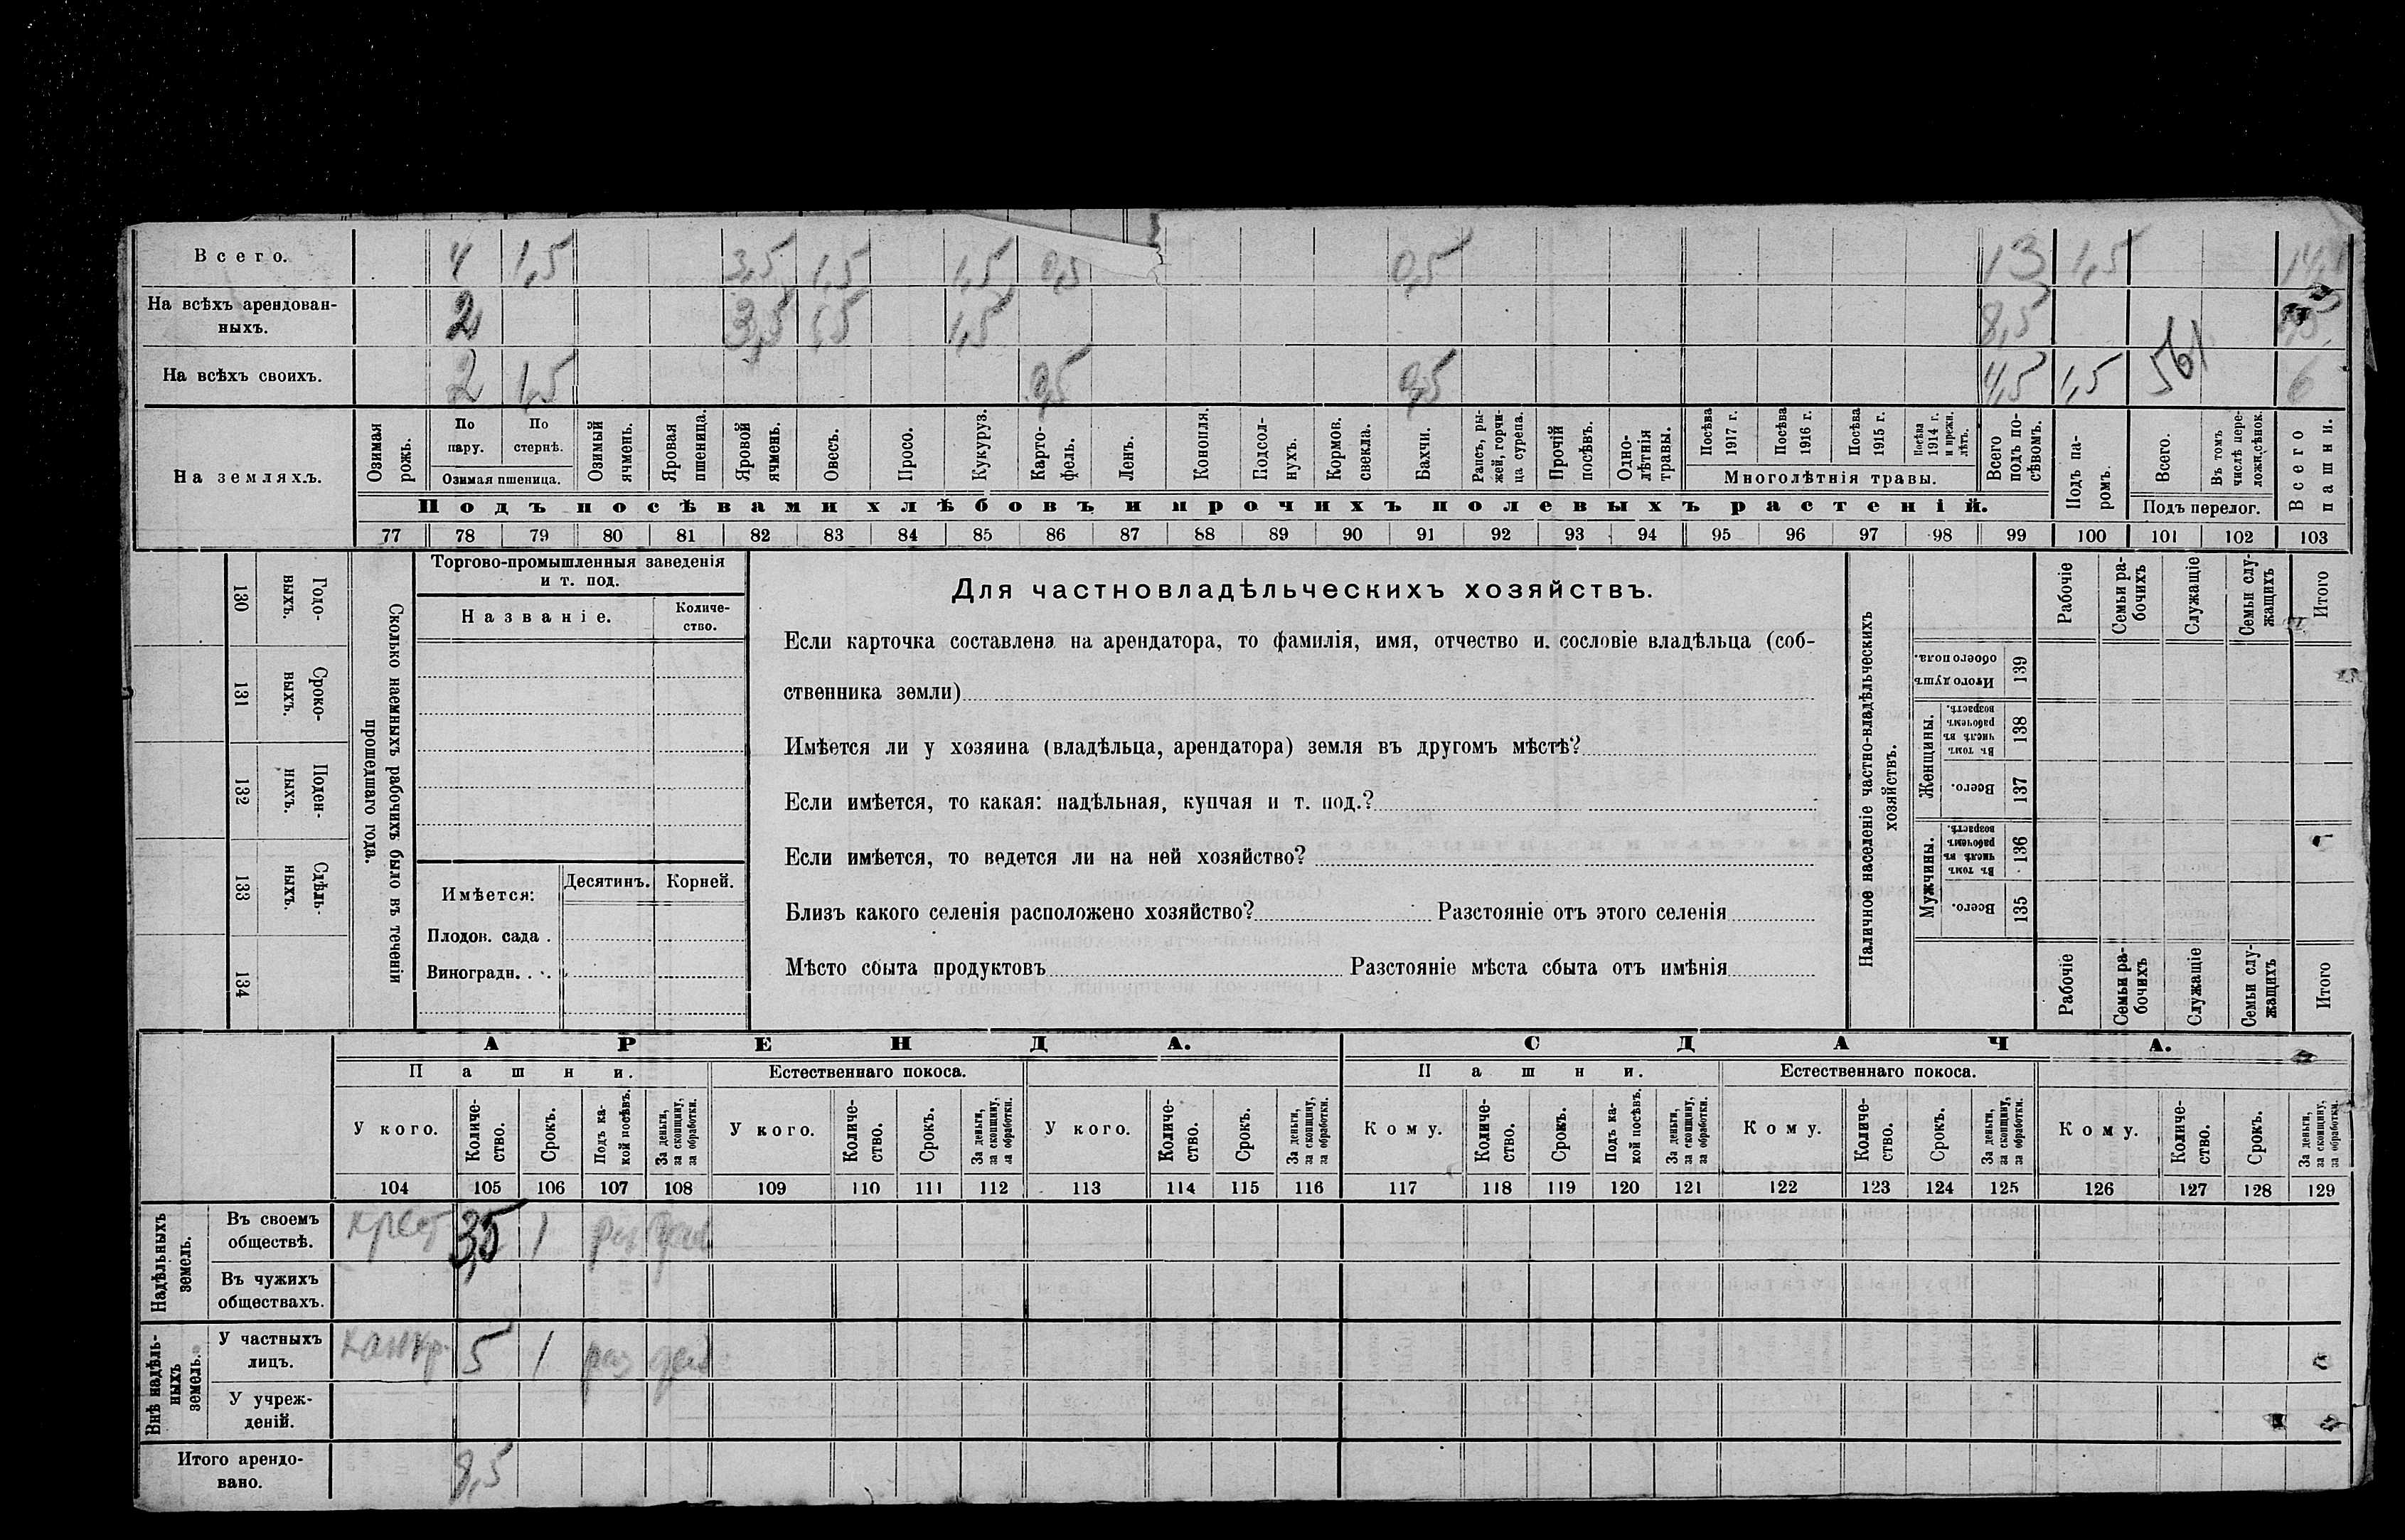 Всего. 4 1,5 3,5 1,5 1,5 0,5 0,5 13 1,5
На всѣхъ арендован-
ныхъ. 2 3,5 1,5 1,5 8,5
На всѣхъ своихъ. 2 1,5 0,5 0,5 4,5 1,5 6
561
На земляхъ.
Озимая рожь.
По пару.
По стернѣ.
Озимая пшеница.
Озимый ячмень.
Яровая пшеница.
Яровой ячмень.
Овесъ.
Просо.
Кукуруз.
Карто-
фель.
Ленъ.
Конопля.
Подсол-
нухъ.
Кормов.
свекла.
Бахчи.
Рапсъ, ры-
жей, горчи-
ца сурепа.
Прочій
посѣвъ.
Одно-
лѣтнія
травы.
Посѣва
1917 г.
Посѣва
1916 г.
Посѣва
1915 г.
Посѣва
1914 г.
и прежн.
лѣтъ.
Многолѣтнія травы.
Всего
подъ по-
сѣвомъ.
Подъ па-
ромъ.
Всего.
Въ томъ
числѣ пере-
ложн. сѣнок.
Подъ перелог.
Всего
пашни.
Подъ посѣвами хлѣбовъ и прочихъ полевыхъ растеній.
77 78 79 80 81 82 83 84 85 86 87 88 89 90 91 92 93 94 95 96 97 98 99 100 101 102 103
Сколько наемныхъ рабочихъ было въ теченіи
прошедшаго года.
Годо-
выхъ.
130
Сроко-
выхъ.
131
Поден-
ныхъ.
132
Сдѣль-
ныхъ.
133
134
Торгово-промышленныя заведенія
и т. под.
Названіе.
Количе-
ство.
Имѣется:
Десятинъ.
Корней.
Плодов. сада .
Виноградн. . .
Для частновладѣльческихъ хозяйствъ.
Если карточка составлена на арендатора, то фамилія, имя, отчество и. сословіе владѣльца (соб-
ственника земли)
Имѣется ли у хозяина (владѣльца, арендатора) земля въ другомъ мѣстѣ?
Если имѣется, то какая: надѣльная, купчая и т. под.?
Если имѣется, то ведется ли на ней хозяйство?
Близъ какого селенія расположено хозяйство? Разстояніе отъ этого селенія
Мѣсто сбыта продуктовъ Разстояніе мѣста сбыта отъ имѣнія
Наличное населеніе частно-владѣльческихъ
хозяйствъ.
Рабочіе
Семьи ра-
бочихъ
Служащіе
Семьи слу-
жащихъ
Итого
Итого душъ
обоего пола.
139
Женщины.
Въ томъ
числѣ въ
рабочемъ
возрастѣ.
138
Всего.
137
Мужчины.
Въ томъ
числѣ въ
рабочемъ
возрастѣ.
136
Всего.
135
Рабочіе
Семьи ра-
бочихъ
Служащіе
Семьи слу-
жащихъ
Итого
АРЕНДА.
СДАЧА.
Пашни.
Естественнаго покоса.
Пашни.
Естественнаго покоса.
У кого.
Количе-
ство.
Срокъ.
Подъ ка-
кой посѣвъ.
За деньги,
за скопщину,
за обработки.
У кого.
Количе-
ство.
Срокъ.
За деньги,
за скопщину,
за обработки.
У кого.
Количе-
ство.
Срокъ.
За деньги,
за скопщину,
за обработки.
Кому.
Количе-
ство.
Срокъ.
Подъ ка-
кой посѣвъ.
За деньги,
за скопщину,
за обработки.
Кому.
Количе-
ство.
Срокъ.
За деньги,
за скопщину,
за обработки.
Кому.
Количе-
ство.
Срокъ.
За деньги,
за скопщину,
за обработки.
104 105 106 107 108 109 110 111 112 113 114 115 116 117 118 119 120 121 122 123 124 125 126 127 128 129
Надѣльныхъ
земель.
Въ своемъ
обществѣ. крест 3,5 1 раз
Въ чужихъ
обществахъ.
Внѣ надѣль-
ныхъ
земель.
У частныхъ
лицъ. 5 1 раз ден
У учреж-
деній.
Итого арендо-
вано. 8,5